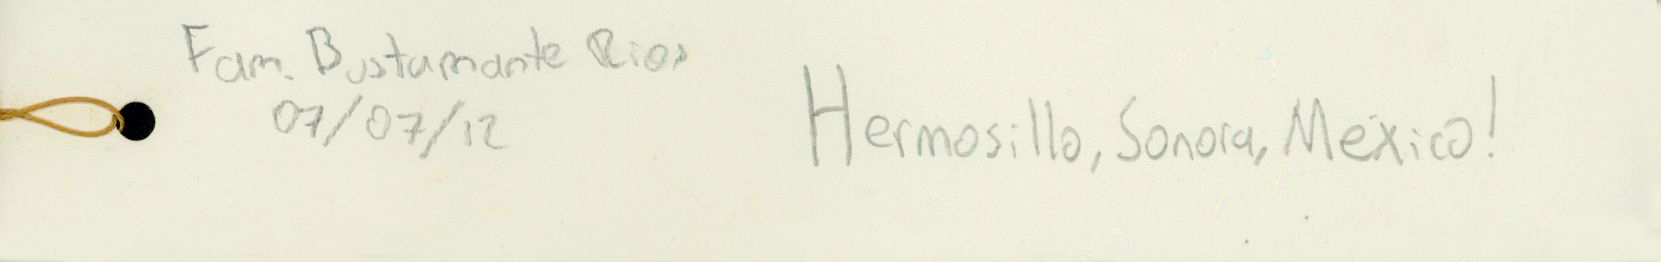 Fam. Bustamante Rios
07/07/12
Hermosillo, Sonora, Mexico!